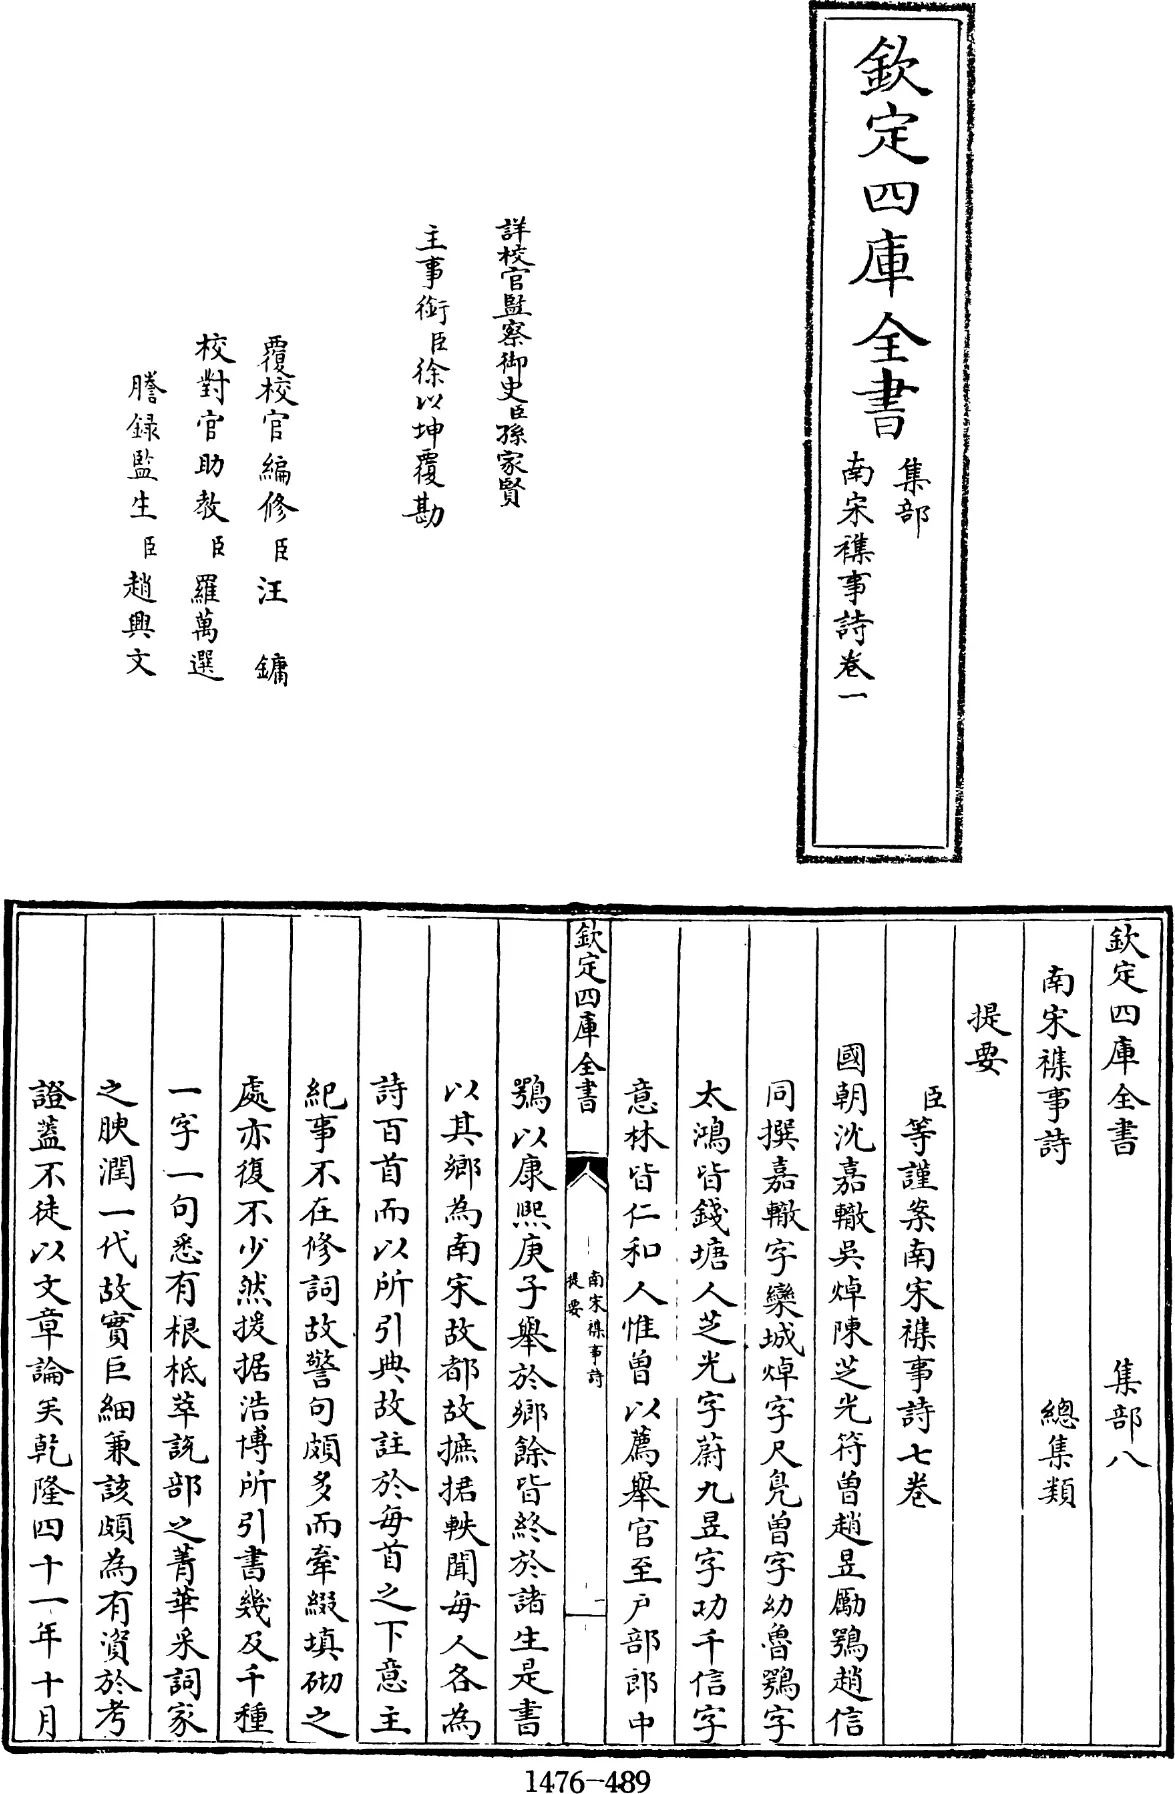 欽定四庫全書
集部
南宋襍事詩卷一
詳校官監察御史臣孫家賢
主事銜臣徐以坤覆勘
覆校官編修臣汪鏞
校對官助教臣羅萬選
謄録監生臣趙興文
欽定四庫全書 集部八
南宋襍事詩 總集類
提要
臣等謹案南宋襍事詩七巻
國朝沈嘉轍吳焯陳芝光符曾趙昱厲鶚趙信
同撰嘉轍字欒城焯字尺鳬曾字幼魯鶚字
太鴻皆錢塘人芝光字蔚九昱字功千信字
意林皆仁和人惟曾以薦舉官至戶部郎中
欽定四庫全書
南宋襍事詩
提要
一
鶚以康熙庚子舉於鄉餘皆終於諸生是書
以其鄉為南宋故都故摭捃軼聞每人各為
詩百首而以所引典故註於每首之下意主
紀事不在修詞故警句頗多而牽綴填砌之
處亦復不少然援据浩博所引書幾及千種
一字一句悉有根柢萃說部之菁華采詞家
之腴潤一代故實巨細兼該頗為有資於考
證葢不徒以文章論矣乾隆四十一年十月
1476-489